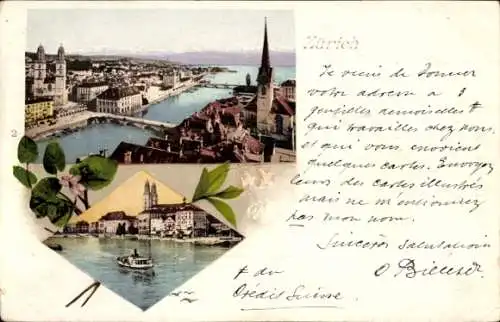 Zürich
Je viens de donner
votre adresse a 3
gentilles demoiselles
qui travailles chez nous
et qui vous envoient
quelques cartes. Envoyez
leurs des cartes illustrés
mais ne m'entionnez
pas mon nom.
Sincères salutations
O
+ du
Crédit Suisse